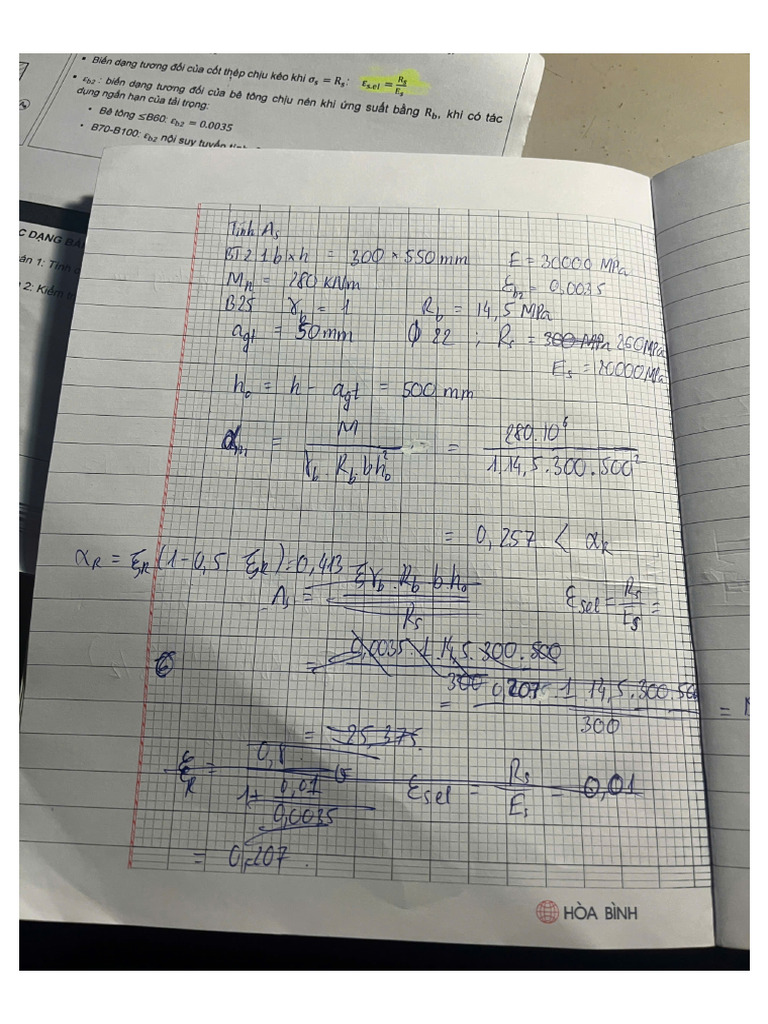 • Biến dạng tương đối của cốt thép chịu kéo khi σs = Rs: εs.el = Rs/Es
• εb2 : biến dạng tương đối của bê tông chịu nén khi ứng suất bằng Rb, khi có tác
dụng ngắn hạn của tải trọng:
• Bê tông ≤B60: εb2 = 0.0035
• B70-B100: εb2 nội suy tuyến
C DẠNG BÀ
án 1: Tính
2: Kiểm
Tính As
BT2 1 b × h = 300 × 550 mm E = 30000 MPa
Mn = 280 kNm εb2 = 0,0035
B25 γb = 1 Rb = 14,5 MPa
agt = 50mm Φ 22 ; Rs = 300 MPa 260MPa
Es = 20000MPa
ho = h - agt = 500 mm
αm = M / γb . Rb b ho² = 280.10⁶ / 1.14,5.300.500²
= 0,257 < αR
αR = ξR (1-0,5 ξR) = 0,413
As = ξ γb . Rb b ho / Rs εsel = Rs/Es =
= 0,0035 . 1 . 14,5 . 300 . 500 / 300
= 0,207 . 1 . 14,5 . 300 . 50 / 300 =
= 25,375
ξR = 0,8 / 1+ 0,01/0,0035 εsel = Rs/Es = 0,01
= 0,207
HÒA BÌNH